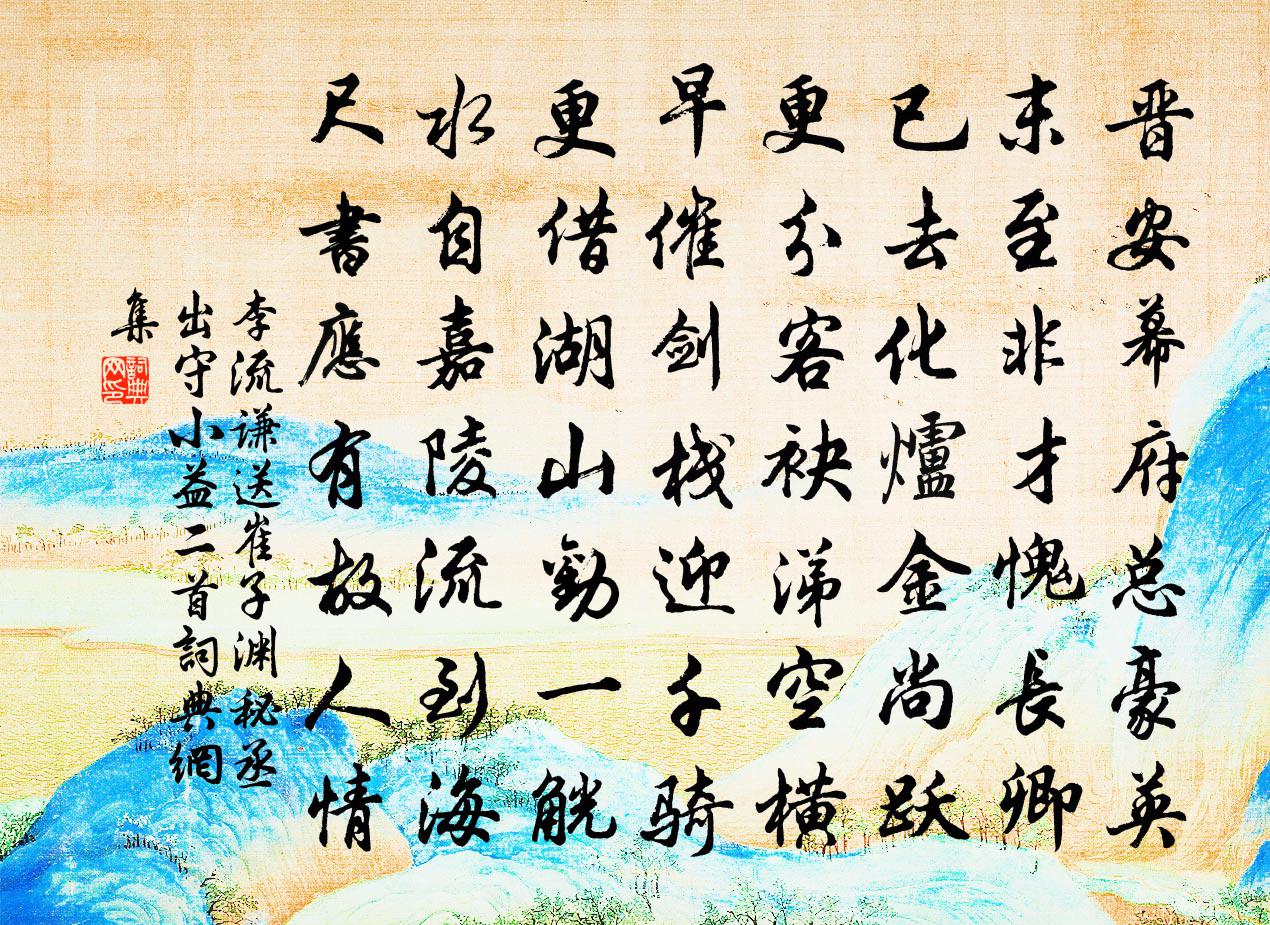 晋安幕府总豪英
末至非才愧長卿
已去化爐金尚跃
更分客袂涕空橫
早催剑栈迎千骑
更借湖山勸一觥
水自嘉陵流到海
尺書應有故人情
李流谦送崔子渊秘丞
出守小益二首詞典網
集
詞典
网印